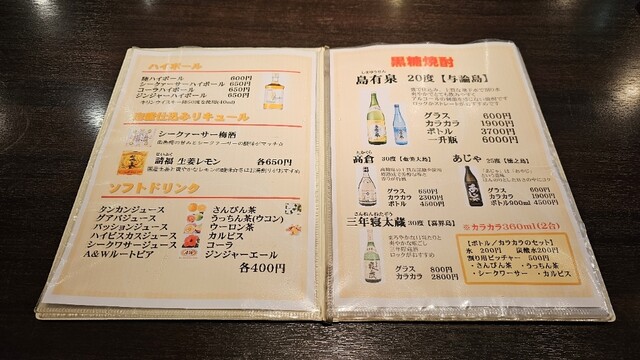 ハイボール
麹ハイボール 600円
シークァーサーハイボール 650円
コーラハイボール 650円
ジンジャーハイボール 650円
泡盛仕込みリキュール
シークァーサー梅酒
請福 生姜レモン 各650円
ソフトドリンク
タンカンジュース
グアバジュース
パッションジュース
ハイビスカスジュース
シークワサージュース
A&Wルートビア
さんぴん茶
うっちん茶(ウコン)
ウーロン茶
カルピス
コーラ
ジンジャーエール
各400円
黒糖焼酎
島有泉 20度【与論島】
グラス 600円
カラカラ 1900円
ボトル 3700円
一升瓶 6000円
高倉 30度【奄美大島】
グラス 680円
カラカラ 2300円
ボトル 4500円
あじゃ 25度【徳之島】
グラス
カラカラ
ボトル900ml 4500円
三年寝太蔵 30度【喜界島】
ロックがおすすめ
グラス 800円
カラカラ 2800円
※カラカラ360ml(2合)
【ボトル/カラカラのセット】
氷 200円 炭酸水200円
割り用ピッチャー 500円
・さんぴん茶 ・うっちん茶
・シークワーサー ・カルピス